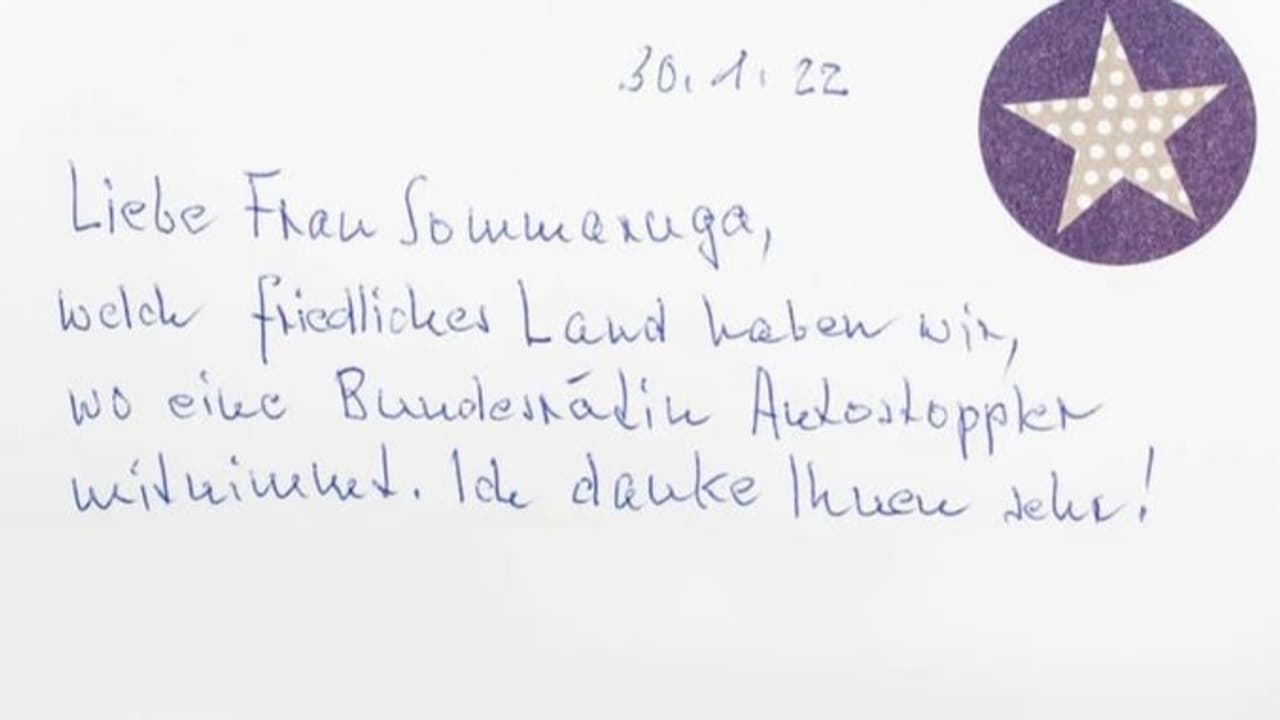 30. 1. 22
Liebe Frau Sommaruga,
welch friedliches Land haben wir,
wo eine Bundesrätin Autostoppler
mitnimmt. Ich danke Ihnen sehr!